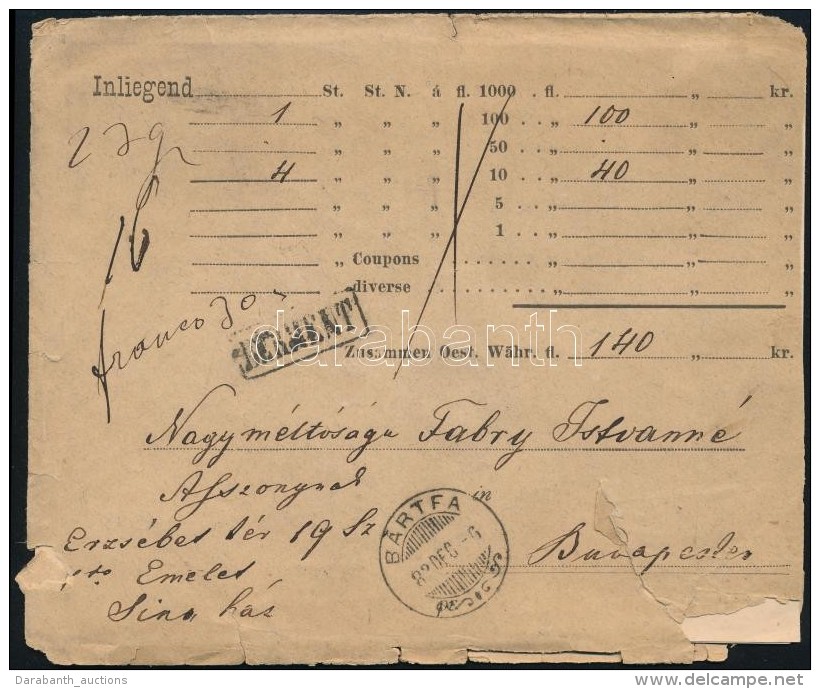 Inliegend St. St. N. á fl. 1000 . fl. „ kr.
1 „ „ „ 100 . . „ 100 „ „
„ „ „ 50 . . „ „ „
4 „ „ „ 10 . . „ 40 „ „
„ „ „ 5 . . „ „ „
„ „ „ 1 . . „ „ „
„ Coupons „ „ „
diverse „ „ „
16
franco 30
Zusammen Oest. Währ. fl. 140 „ kr.
darabanth
Nagyméltóságu Fabry Istvanné
Asszonynak in
Erzsébet tér 19 Sz Budapesten
1ső Emelet
Sina ház
BÁRTFA
82 DEC -6
Darabanth_auctions
delcampe.net